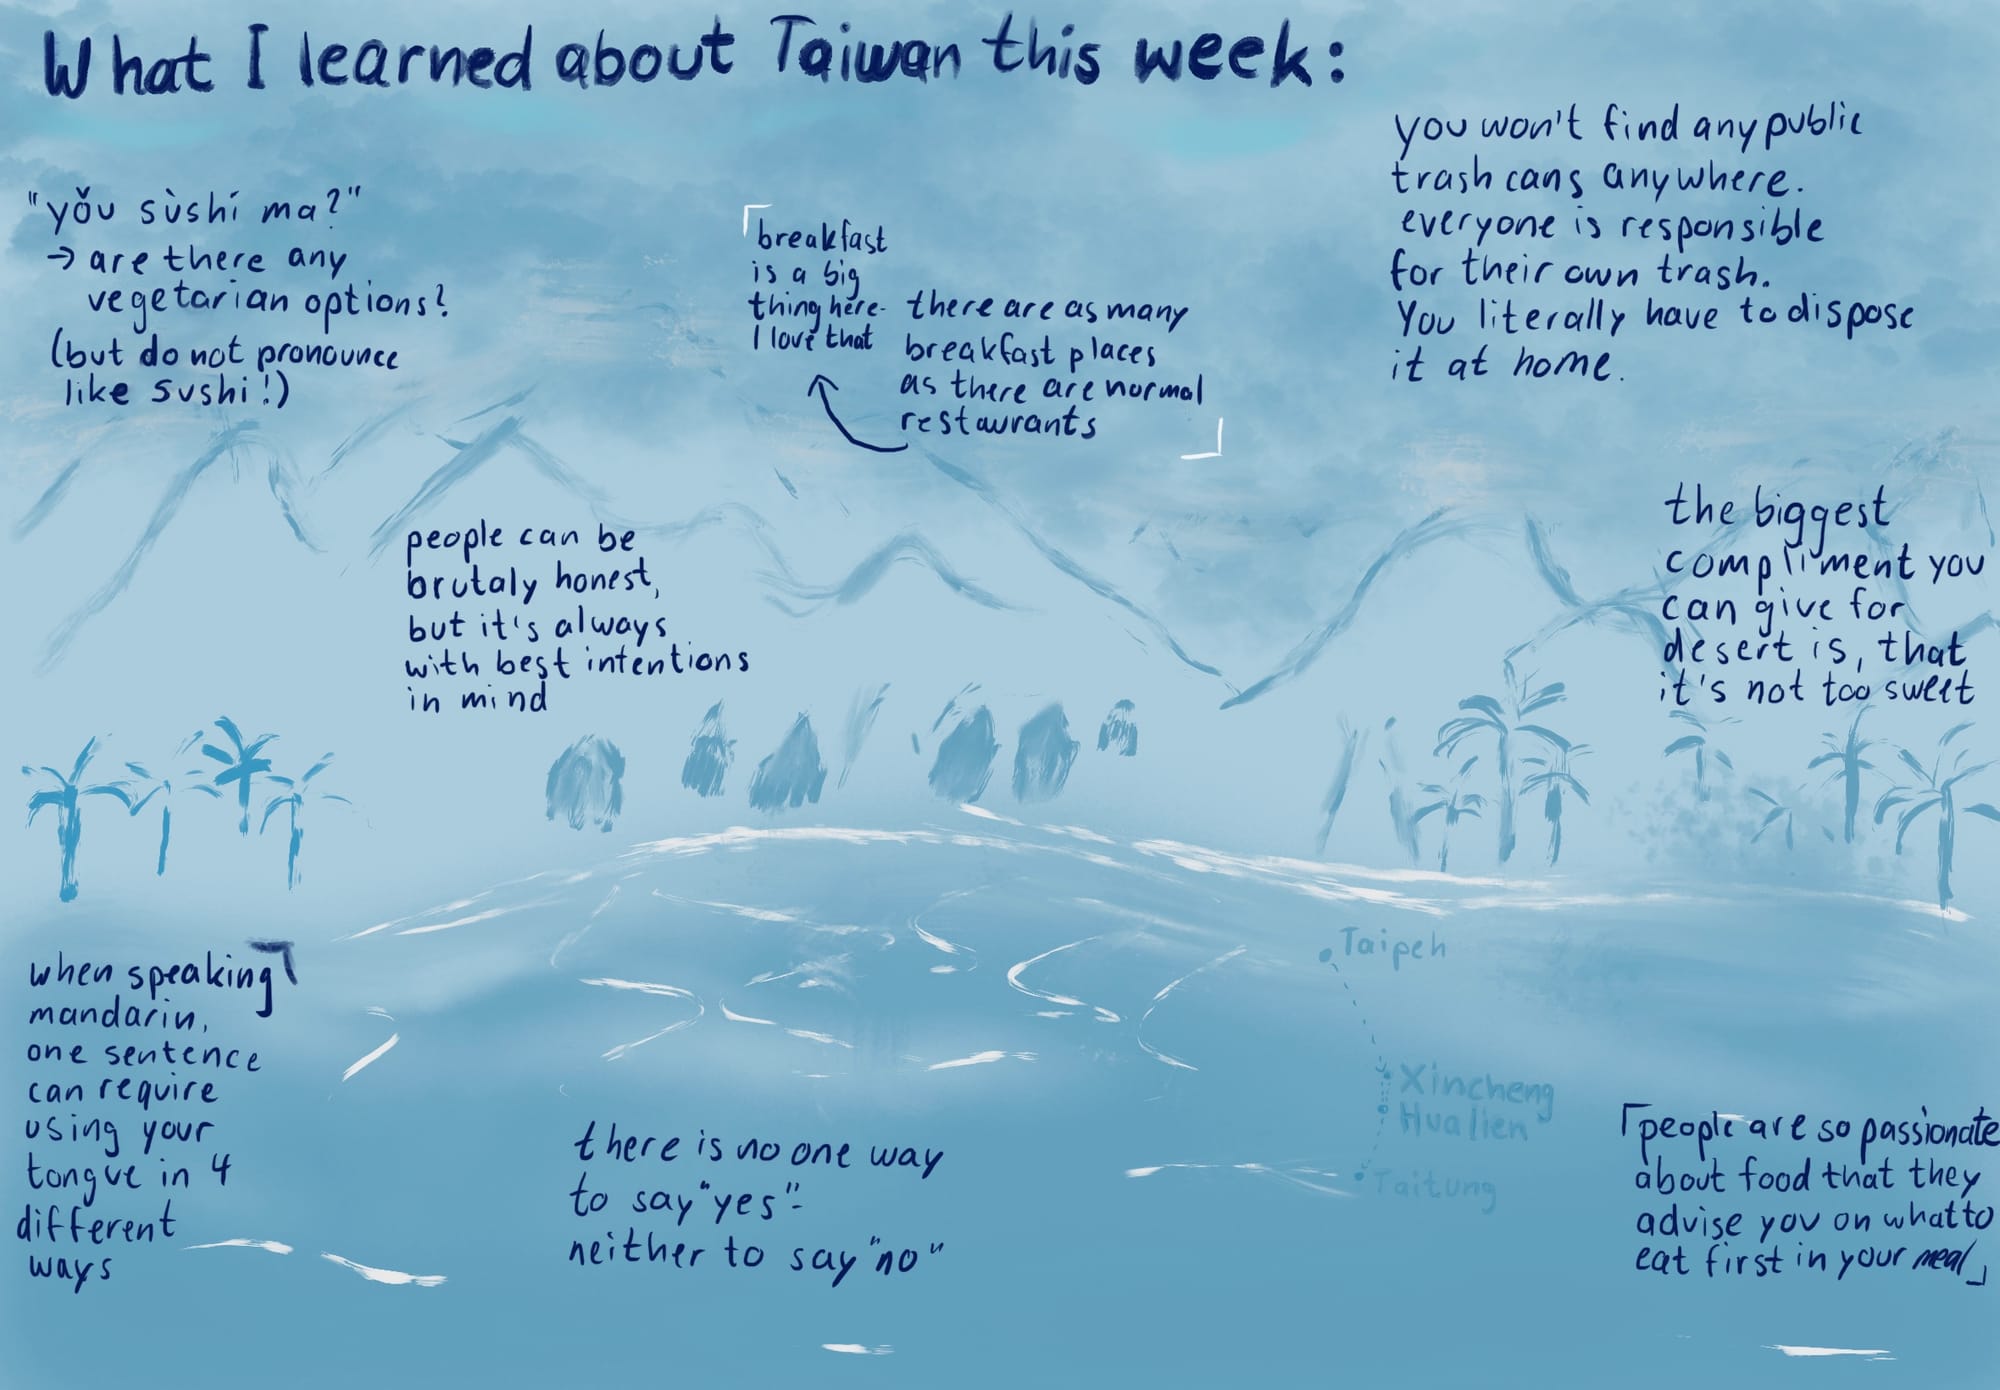 What I learned about Taiwan this week:
"yǒu sùshí ma?"
→ are there any
vegetarian options?
(but do not pronounce
like sushi!)
「breakfast
is a big
thing here-
I love that
there are as many
breakfast places
as there are normal
restaurants」
you won't find any public
trash cans anywhere.
everyone is responsible
for their own trash.
You literally have to dispose
it at home.
people can be
brutaly honest,
but it's always
with best intentions
in mind
the biggest
compliment you
can give for
desert is, that
it's not too sweet
when speaking
mandarin,
one sentence
can require
using your
tongue in 4
different
ways
there is no one way
to say "yes"-
neither to say "no"
Taipeh
Xincheng
Hualien
Taitung
「people are so passionate
about food that they
advise you on what to
eat first in your meal」